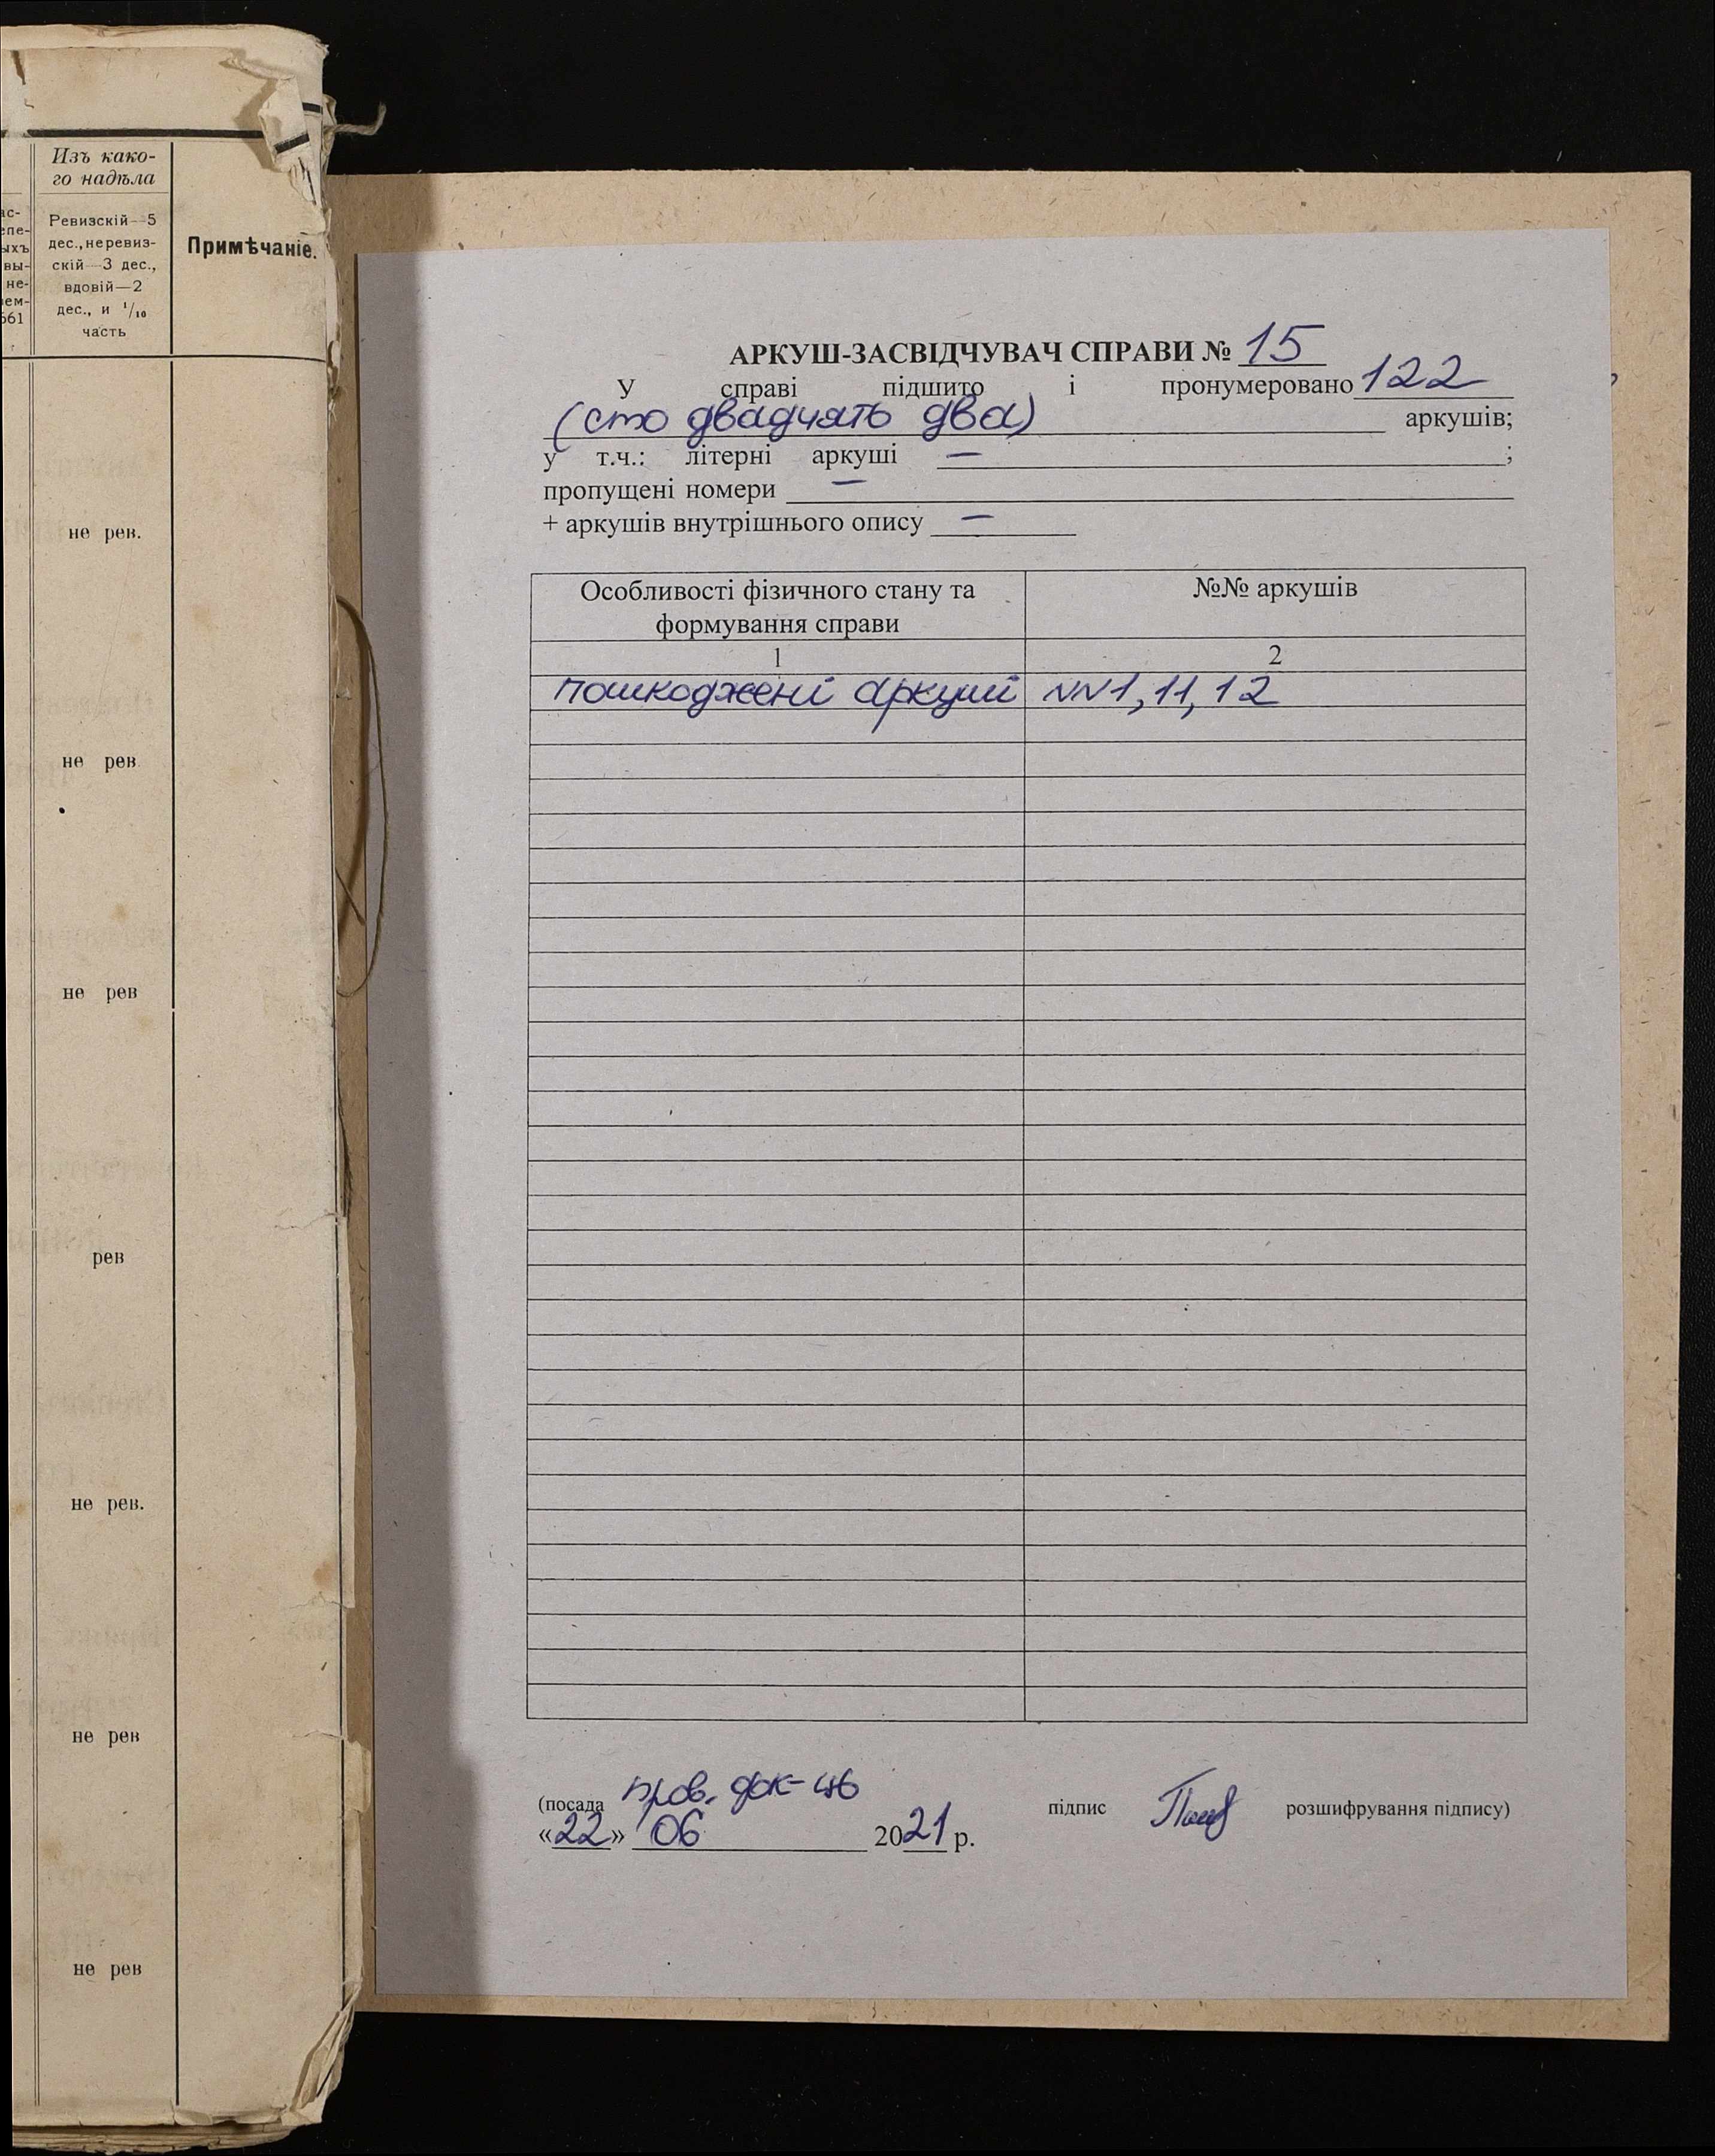 Изъ како-
го надѣла
Ревизскій—5
дес., неревиз-
скій—3 дес.,
вдовій—2
дес., и 1/10
часть
Примѣчаніе.
не рев.
не рев
не рев
рев
не рев.
не рев
не рев
АРКУШ-ЗАСВІДЧУВАЧ СПРАВИ № 15
У справі підшито і пронумеровано 122
(сто двадцять два) аркушів;
у т.ч.: літерні аркуші — ;
пропущені номери —
+ аркушів внутрішнього опису —
Особливості фізичного стану та
формування справи
№№ аркушів
1 2
пошкоджені аркуші NN1, 11, 12
(посада пров. док-зн підпис розшифрування підпису)
«22» 06 2021 р.